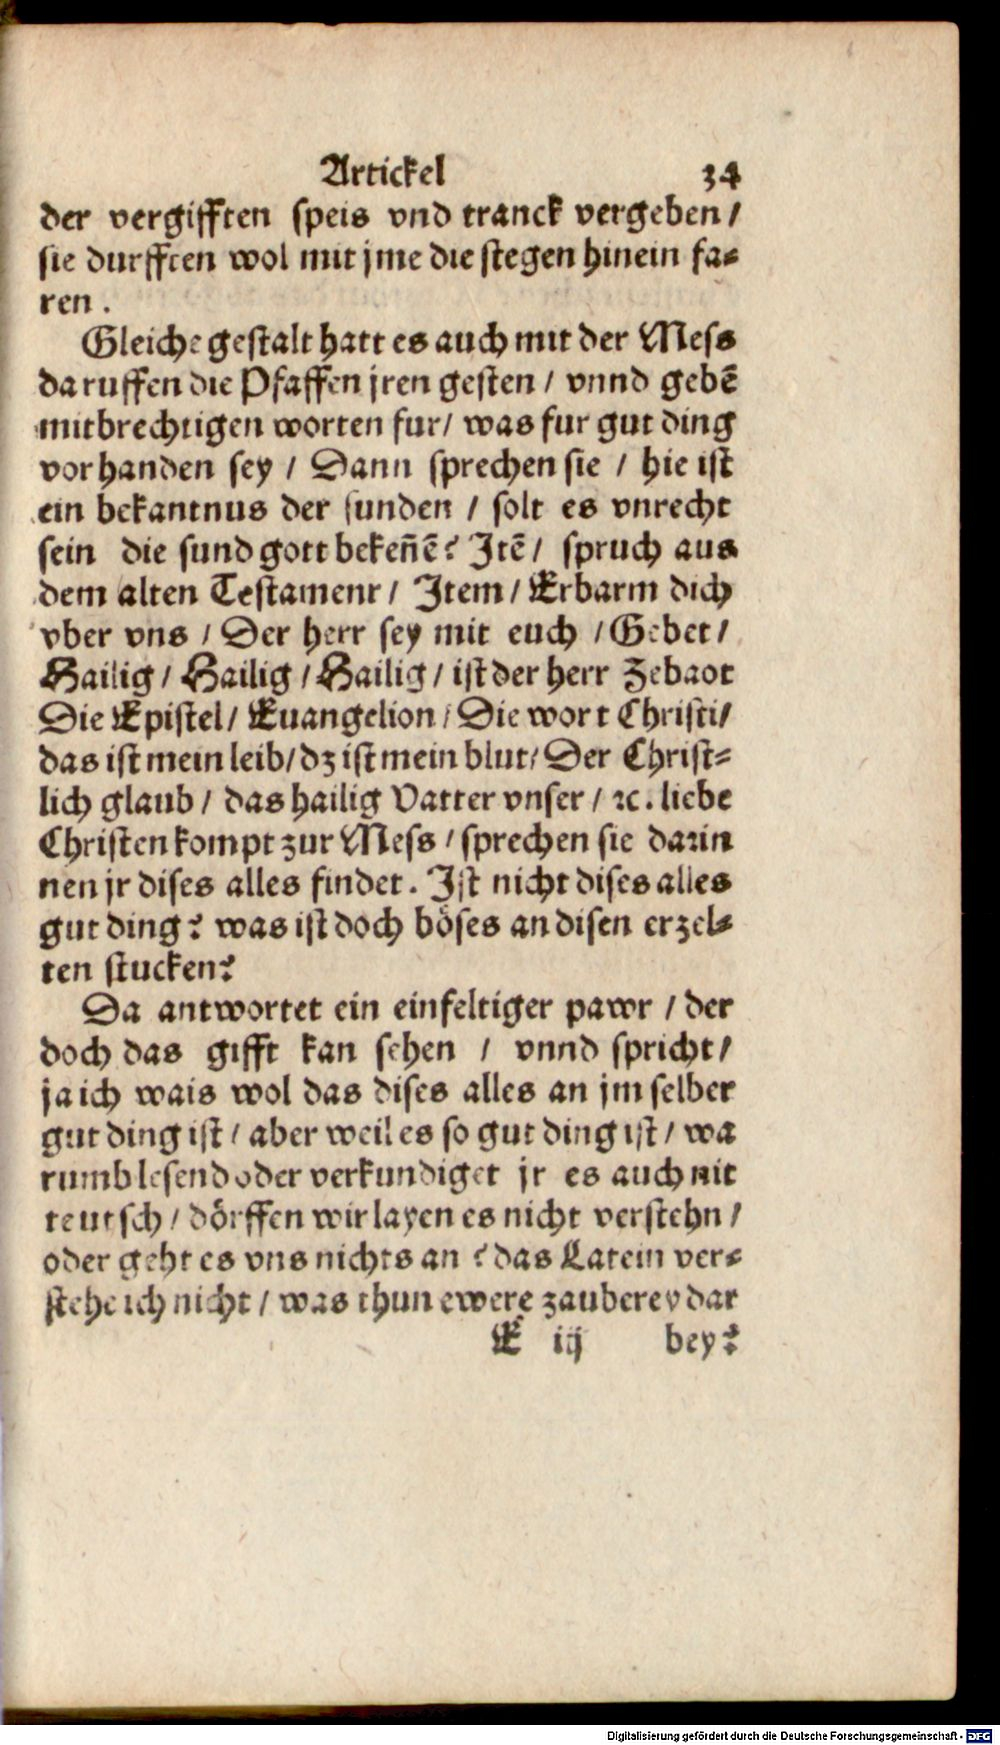 Artickel 34
der vergifften speis vnd tranck vergeben /
sie durfften wol mit jme die stegen hinein fa⸗
ren .
Gleiche gestalt hatt es auch mit der Mess
da ruffen die Pfaffen jren gesten / vnnd gebē
mitbrechtigen worten fur / was fur gut ding
vorhanden sey / Dann sprechen sie / hie ist
ein bekantnus der sunden / solt es vnrecht
sein die sund gott bekeñē? Jtē / spruch aus
dem alten Testamenr / Jtem / Erbarm dich
vber vns / Der herr sey mit euch / Gebet /
Hailig / Hailig / Hailig / ist der herr Zebaot
Die Epistel / Euangelion / Die wort Christi /
das ist mein leib / dz ist mein blut / Der Christ⸗
lich glaub / das hailig Vatter vnser / ꝛc. liebe
Christen kompt zur Mess / sprechen sie darin
nen jr dises alles findet . Jst nicht dises alles
gut ding? was ist doch böses an disen erzel⸗
ten stucken?
Da antwortet ein einfeltiger pawr / der
doch das gifft kan sehen / vnnd spricht /
ja ich wais wol das dises alles an jm selber
gut ding ist / aber weil es so gut ding ist / wa
rumb lesend oder verkundiget jr es auch nit
teutsch / dörffen wir layen es nicht verstehn /
oder geht es vns nichts an ? das Latein ver⸗
stehe ich nicht / was thun ewere zauberey dar
E iij bey?
Digitalisierung gefördert durch die Deutsche Forschungsgemeinschaft - DFG